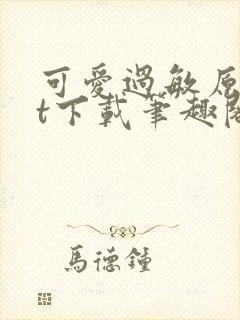 可愛過敏原
t下載筆趣閣
馬德鐘